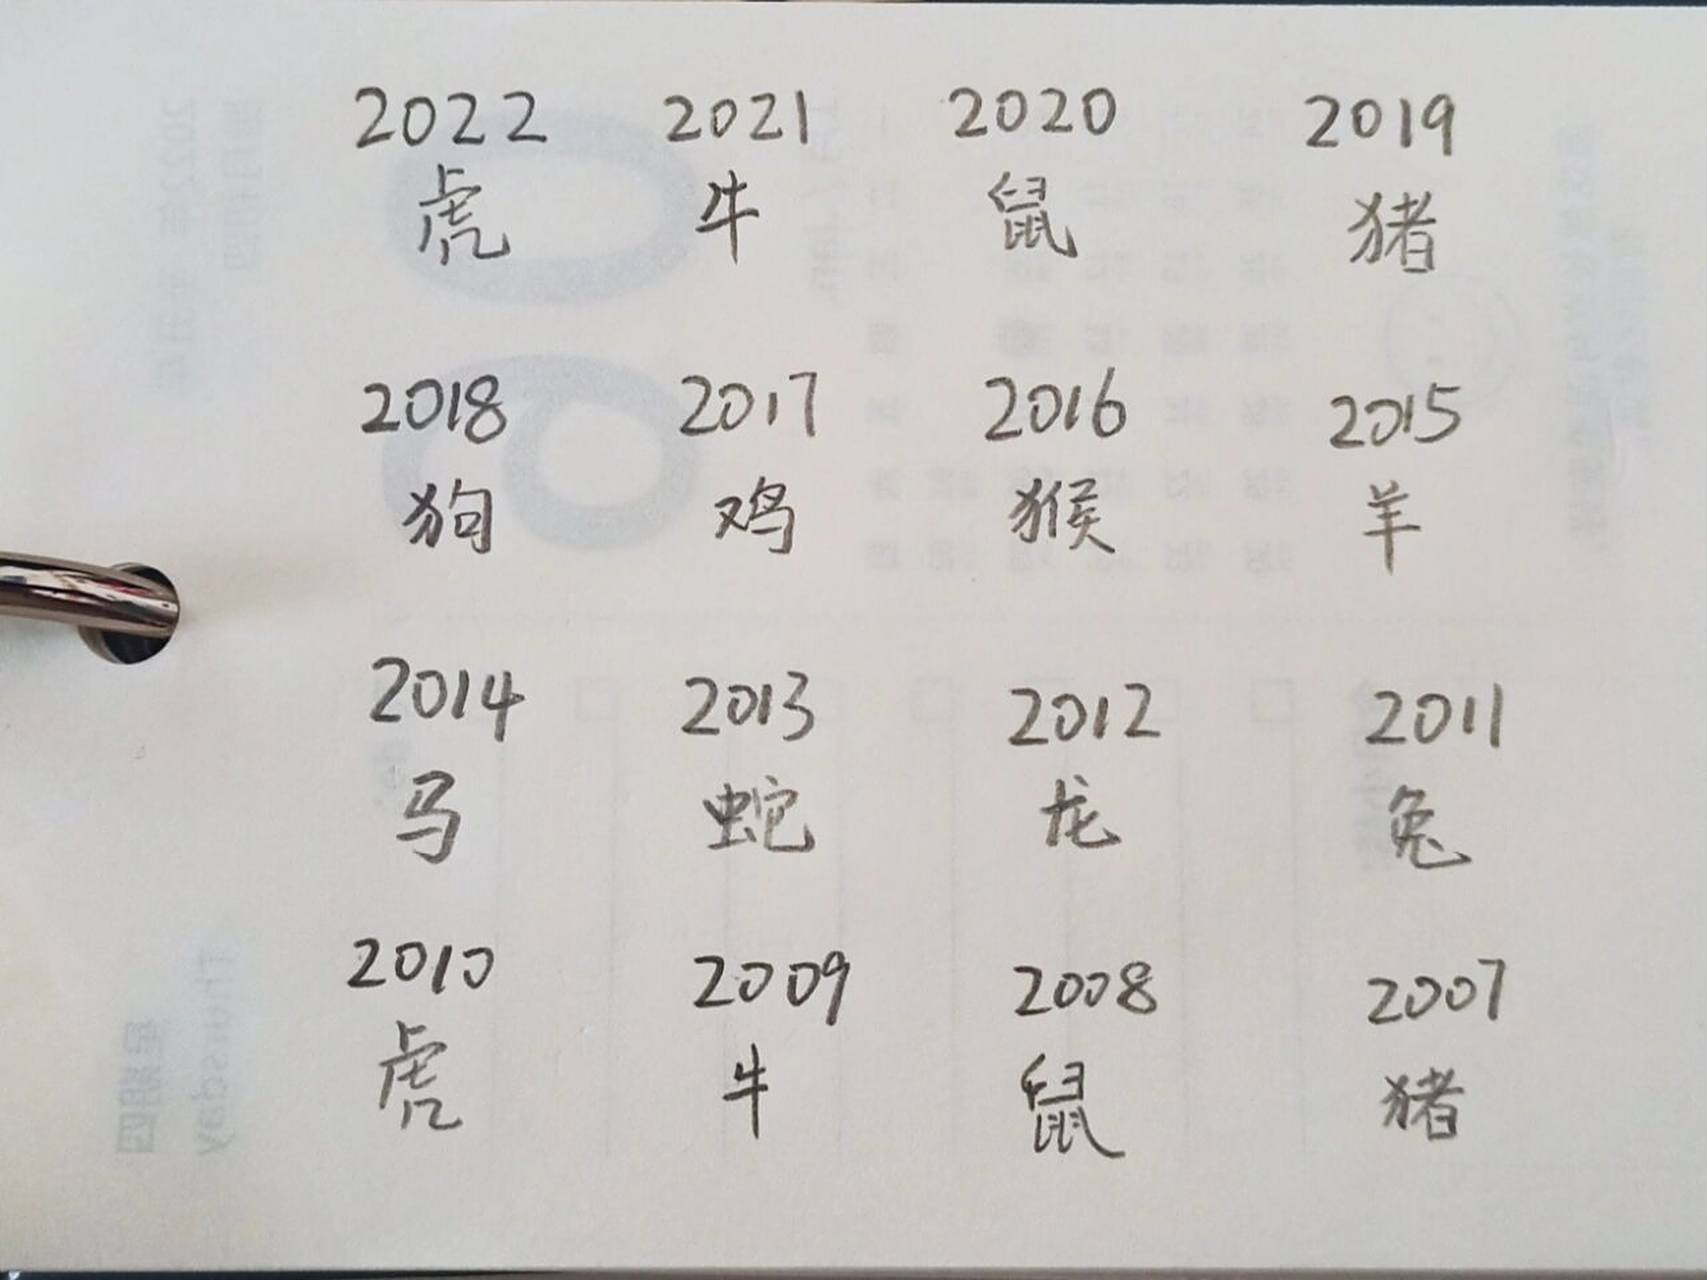 2022 2021 2020 2019
虎 牛 鼠 猪
2018 2017 2016 2015
狗 鸡 猴 羊
2014 2013 2012 2011
马 蛇 龙 兔
2010 2009 2008 2007
虎 牛 鼠 猪